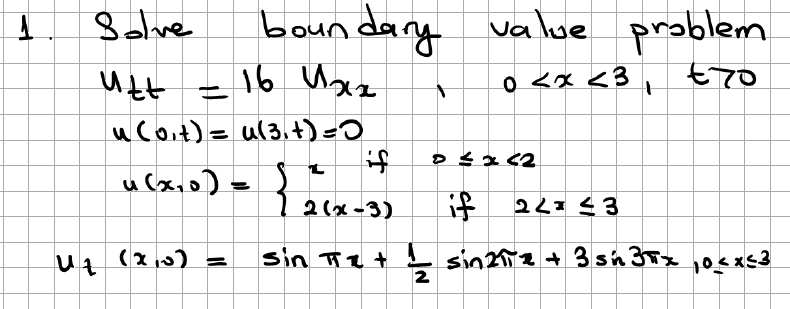 1. Solve boundary value problem
u_tt = 16 u_xx , 0 < x < 3, t > 0
u(0,t) = u(3,t) = 0
u(x,0) = { x if 0 ≤ x < 2
2(x-3) if 2 < x ≤ 3
u_t (x,0) = sin πx + 1/2 sin 2πx + 3 sin 3πx , 0 ≤ x ≤ 3